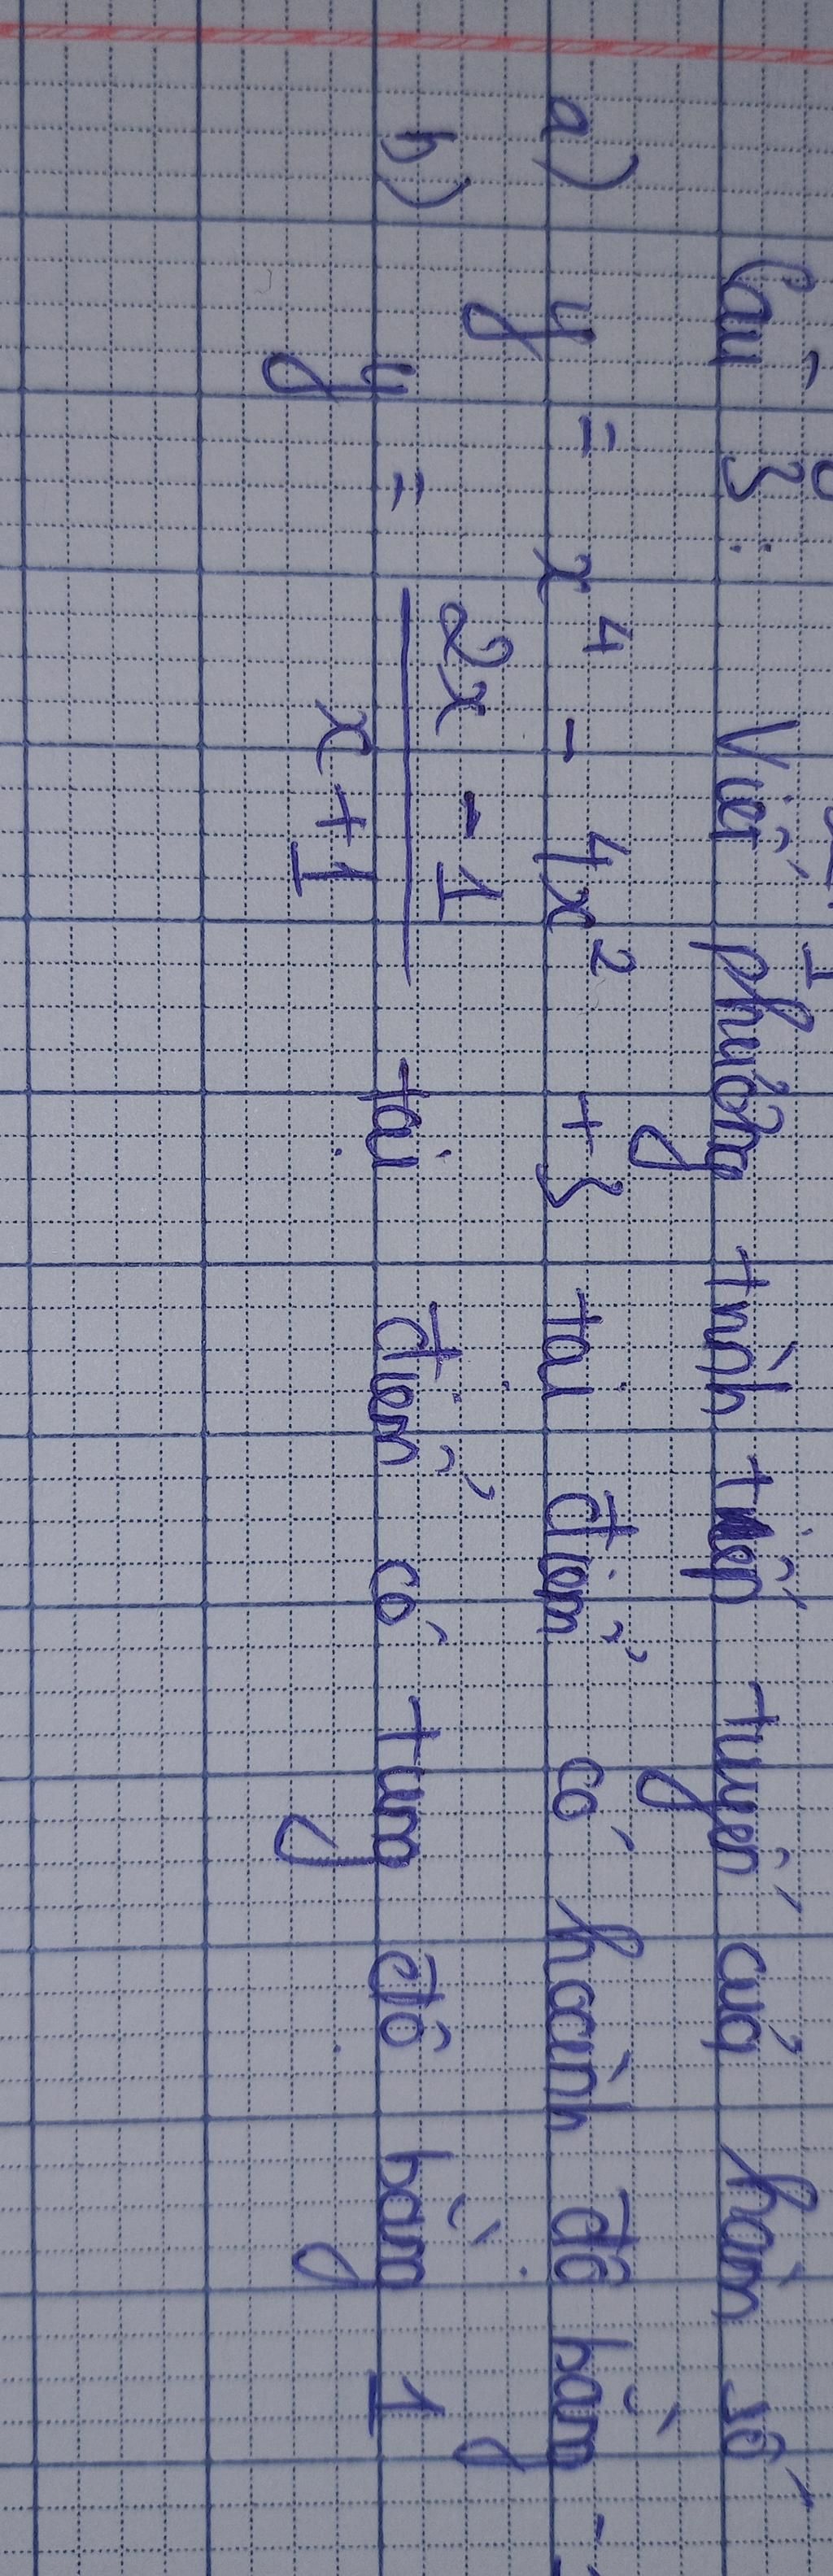 Câu 3: Viết phương trình tiếp tuyến của hàm số
a) y = x⁴ - 4x² + 3 tại điểm có hoành độ bằng -
b) y = (2x - 1)/(x + 1) tại điểm có tung độ bằng 1